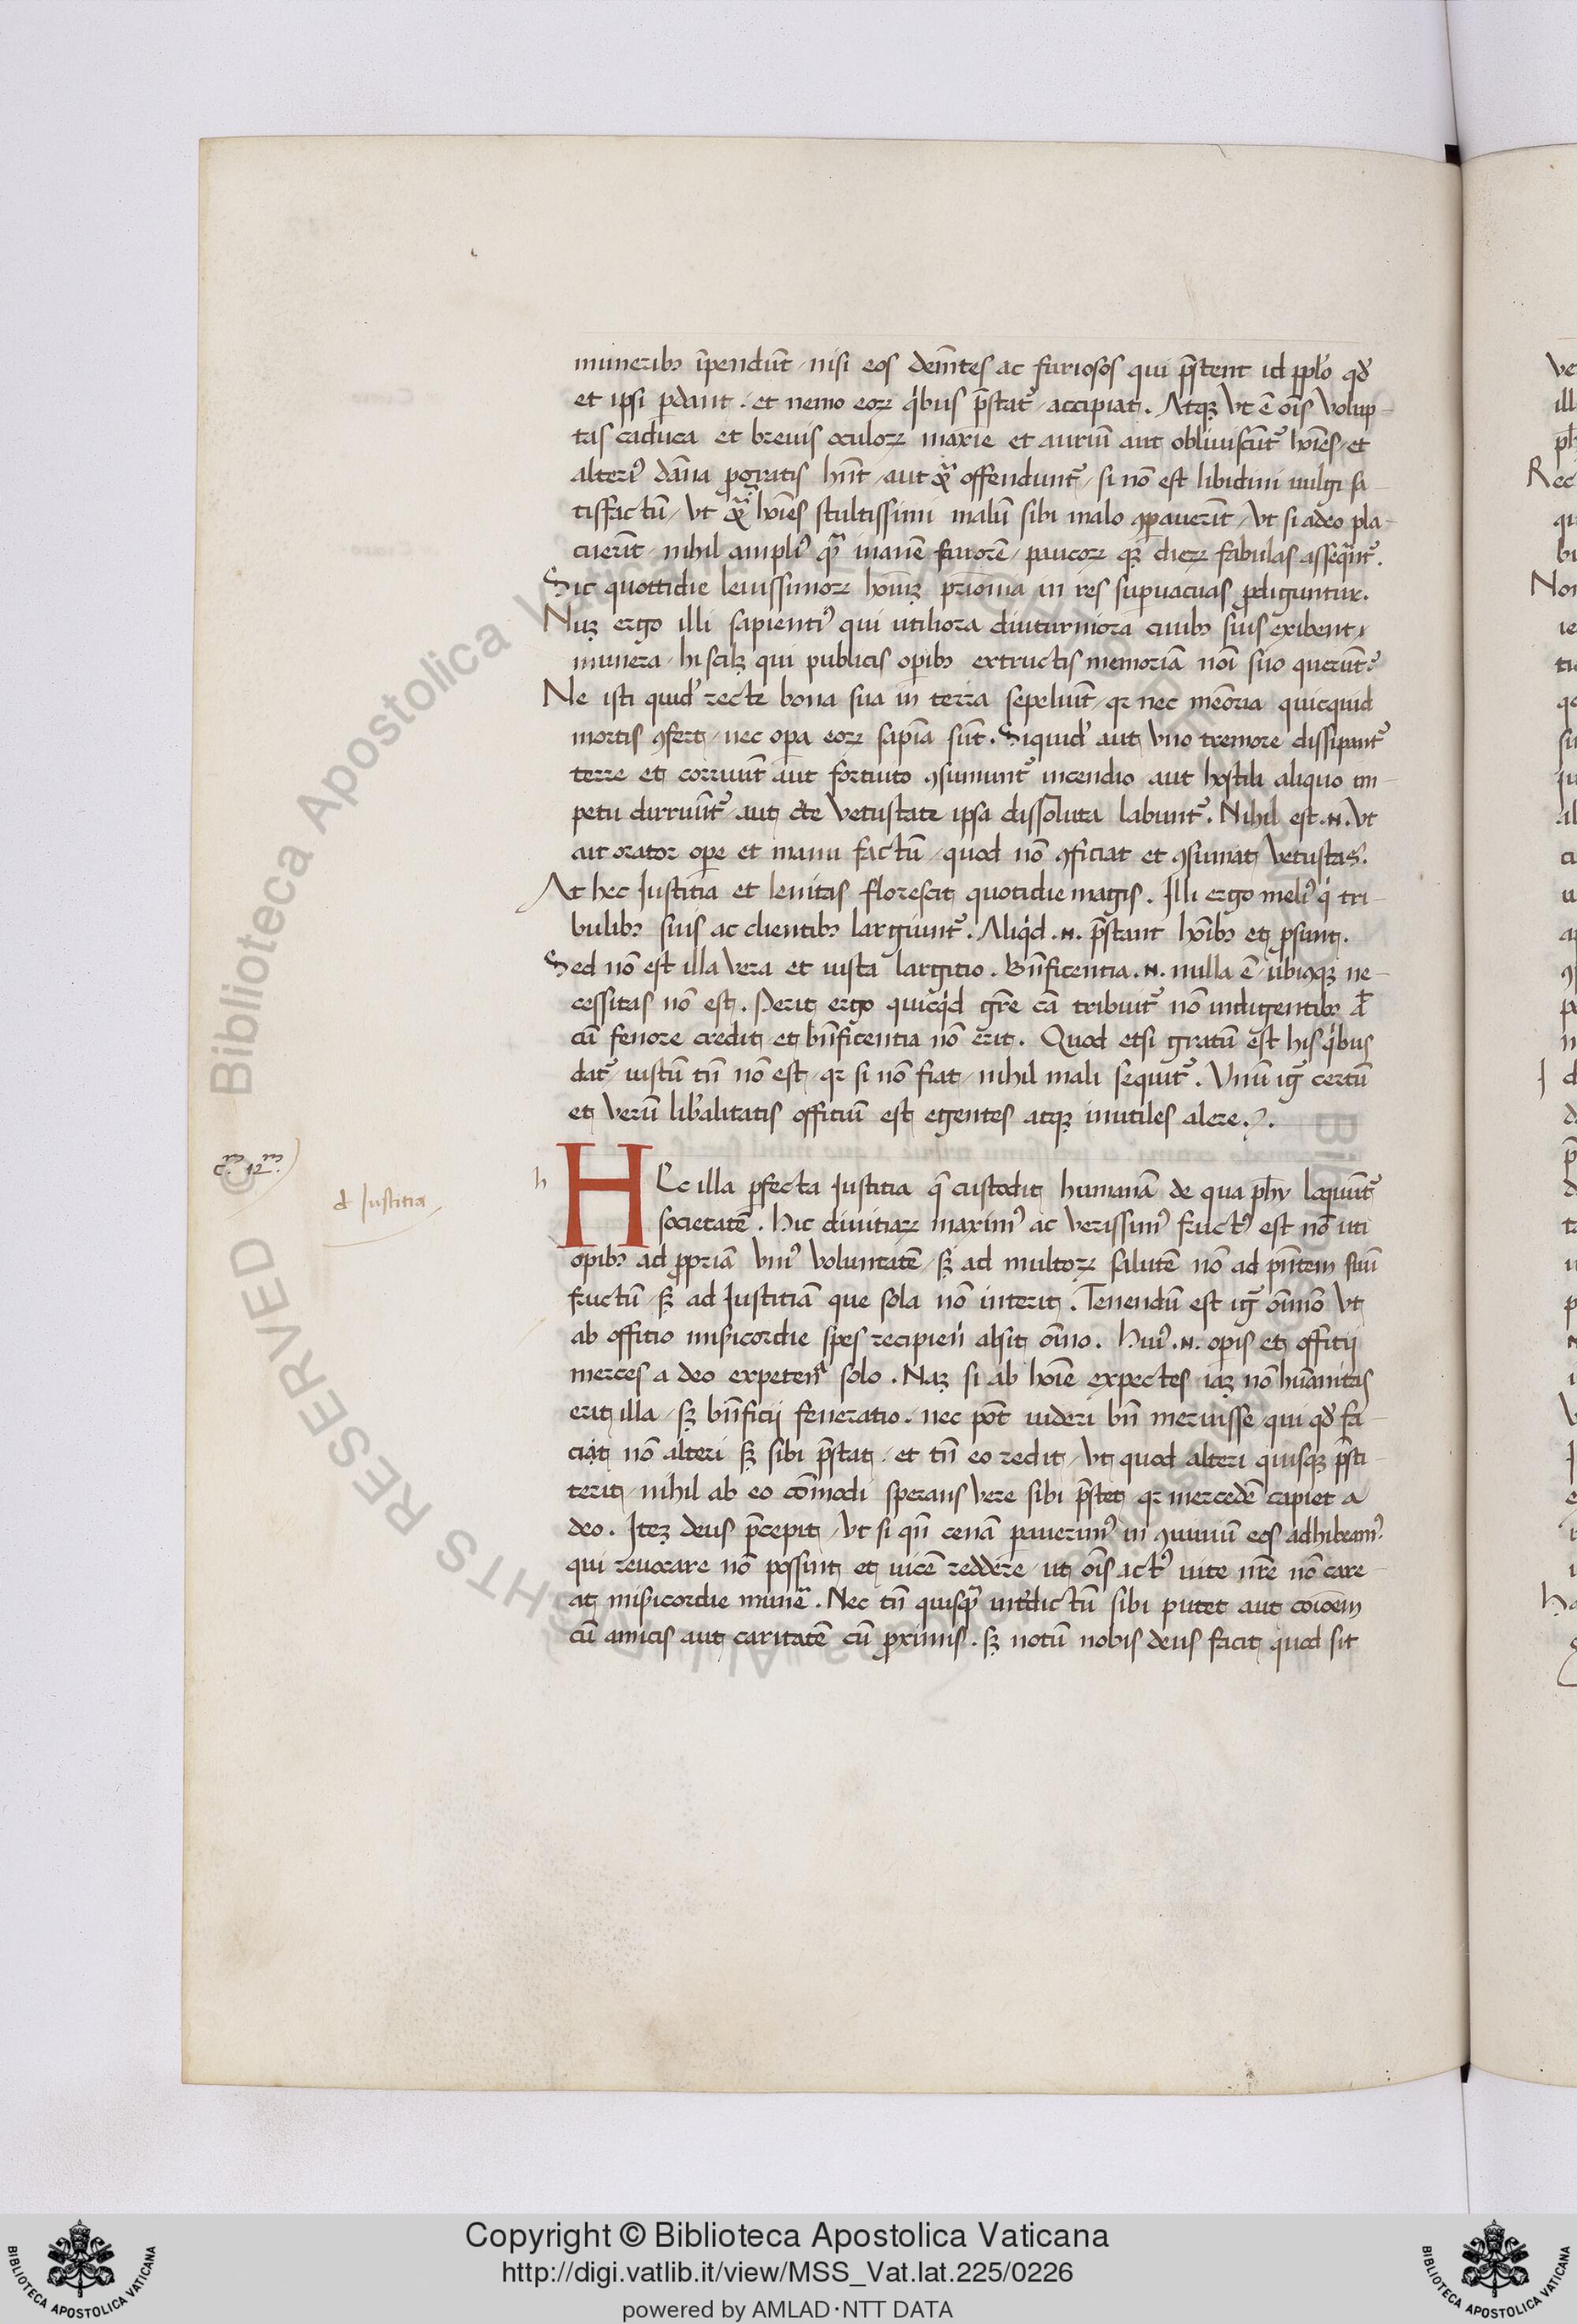 muneribꝰ īpendūt / nisi eos demētes ac furiosos qui p̄stent id pplo qd̕
et ipsi pdant . et nemo eorꝝ qͥbus p̄stat᷑ accipiat . Atqꝫ Vt ē oīs Volup-
tas caduca et breuis oculorꝝ maxīe et auriū aut obliuiscūt᷑ hoīes / et
alteriꝰ dāna ꝓgratis hn̄t / aut offendunt᷑ / si nō est libidini uulgi sa-
tisfactū / Vt hoīes stultissimi malū sibi malo ꝯpauerīt / Vt si adeo pla-
cuerīt / nihil ampliꝰ qᷓ inanē fauorē / paucorꝝ qꝫ dierꝝ fabulas asseqūt᷑ .
Sic quottidie leuissimorꝝ homīꝫ in res supuacuas ꝓdiguntur .
Nūꝫ ergo illi sapientiꝰ qui utiliora diuturniora ciuibꝰ suis exibent /
munera / hi scilꝫ qui publicis opibꝰ extructis memoriā noī suo querūt᷑
Ne isti quid̕ recte bona sua in terra sepeliūt / qꝛ nec memōria quicquid
mortis ꝯfert / nec opa eorꝝ sapīa sūt . Siquid̕ aut Vno tremore dissipant᷑
terre et corruūt aut fortuito ꝯsumunt᷑ incendio aut hostili aliquo im-
petu dirruūt᷑ / aut Vetustate ipsa dissoluta labunt᷑ . Nihil est .N. Vt
ait orator ope et manu factū / quod nō ꝯficiat et ꝯsumat Vetustas .
At hec Iustitia et lenitas florescit quotidie magis . Illi ergo meliꝰ qͥ tri-
bulibꝰ suis ac clientibꝰ largiunt᷑ . Aliqͥd .N. p̄stant hoībꝰ et psunt .
Sed nō est illa Vera et iusta largitio . Bn̄ficentia .N. nulla ē / ubicūqꝫ ne-
cessitas nō est . Perit ergo quicqͥd gr̄e cā tribuit᷑ nō indigentibꝰ
cū fenore credit et bn̄ficentia nō erit . Quod etsi gratū est his qͥbus
dat᷑ / iustū tn̄ nō est / qꝛ si nō fiat / nihil mali sequit᷑ . Vnū igͣ certū
et Verū lib̕alitatis offitiū est egentes atqꝫ inutiles alere .
h
HEc illa pfecta Iustitia q̄ custodit humanā de qua phy loquūt᷑
d Iustitia
societatē . Hic diuitiarꝝ maximꝰ ac Verissimꝰ fructꝰ est nō uti
opibꝰ ad ppriā Vniꝰ Voluntatē / sꝫ ad multorꝝ salutē nō ad pn̄tem suū
fructū / sꝫ ad Iustitiā que sola nō interit . Tenendū est igͣ om̄nō Vt
ab offitio misicordie spes recipienī absit oīno . Huiꝰ .N. opis et offitij
merces a deo expetenͣ solo . Naꝫ si ab hoīe expectes iaꝫ nō humanitas
erit illa / sꝫ bn̄ficij feneratio . nec pōt uideri bn̄ meruisse / qui qd̕ fa-
ciat nō alteri sꝫ sibi p̄stat / et tn̄ eo redit / Vt quod alteri quisqꝫ p̄sti-
terit / nihil ab eo cōmodi sperans Vere sibi p̄stet qꝛ mercedē capiet a
deo . Iteꝫ deus p̄cepit / Vt si qn̄ cenā pauerimꝰ in ꝯuiuiū eos adhibeamꝰ
qui reuocare nō possint et uicē reddere / ut oīs actꝰ uite nr̄e nō care-
at misicordie munēͣ . Nec tn̄ quisqᷓ int̕dictū sibi putet aut coīoēm
cū amicis aut caritatē cū ꝓximis . sꝫ notū nobis deus facit quod sit
Biblioteca Apostolica Vaticana
ALL RIGHTS RESERVED ©
Copyright © Biblioteca Apostolica Vaticana
http://digi.vatlib.it/view/MSS_Vat.lat.225/0226
powered by AMLAD·NTT DATA
BIBLIOTECA APOSTOLICA VATICANA
BIBLIOTECA APOSTOLICA VATICANA